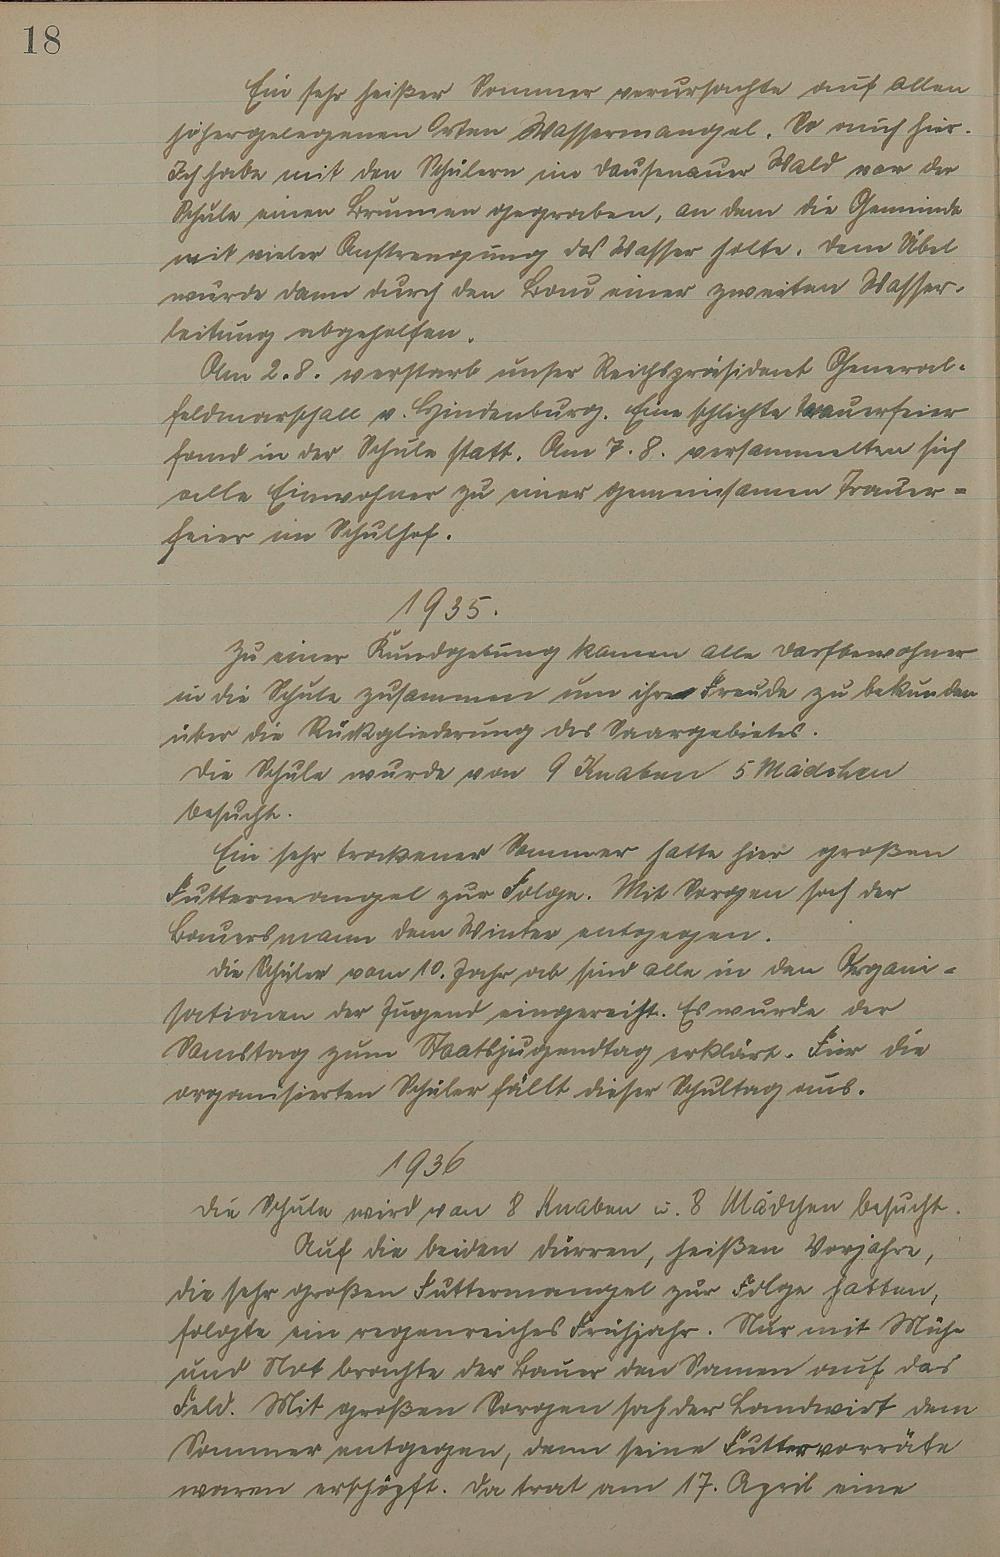 18
Ein sehr heißer Sommer verursachte auf allen
höhergelegenen Orten Wassermangel. So auch hier.
Ich habe mit den Schülern im Dausenauer Wald vor der
Schule einen Brunnen gegraben, an dem die Gemeinde
mit vieler Anstrengung das Wasser holte. Dem Übel
wurde dann durch den Bau einer zweiten Wasser-
leitung abgeholfen.
Am 2.8. verstarb unser Reichspräsident General-
feldmarschall v. Hindenburg. Eine schlichte Trauerfeier
fand in der Schule statt. Am 7.8. versammelten sich
alle Einwohner zu einer gemeinsamen Trauer=
feier im Schulhof.
1935.
Zu einer Kundgebung kamen alle Dorfbewohner
in die Schule zusammen um ihre Freude zu bekunden
über die Rückgliederung des Saargebietes.
Die Schule wurde von 9 Knaben 5 Mädchen
besucht.
Ein sehr trockener Sommer hatte hier großen
Futtermangel zur Folge. Mit Sorgen sah der
Bauersmann dem Winter entgegen.
Die Schüler vom 10. Jahr ab sind alle in den Organi=
sationen der Jugend eingereiht. Es wurde der
Samstag zum Staatsjugendtag erklärt. Für die
organisierten Schüler fällt dieser Schultag aus.
1936
Die Schule wird von 8 Knaben u. 8 Mädchen besucht.
Auf die beiden dürren, heißen Vorjahre,
die sehr großen Futtermangel zur Folge hatten,
folgte ein regenreiches Frühjahr. Nur mit Mühe
und Not brachte der Bauer den Samen auf das
Feld. Mit großen Sorgen sah der Landwirt dem
Sommer entgegen, denn seine Futtervorräte
waren erschöpft. Da trat am 17. April eine